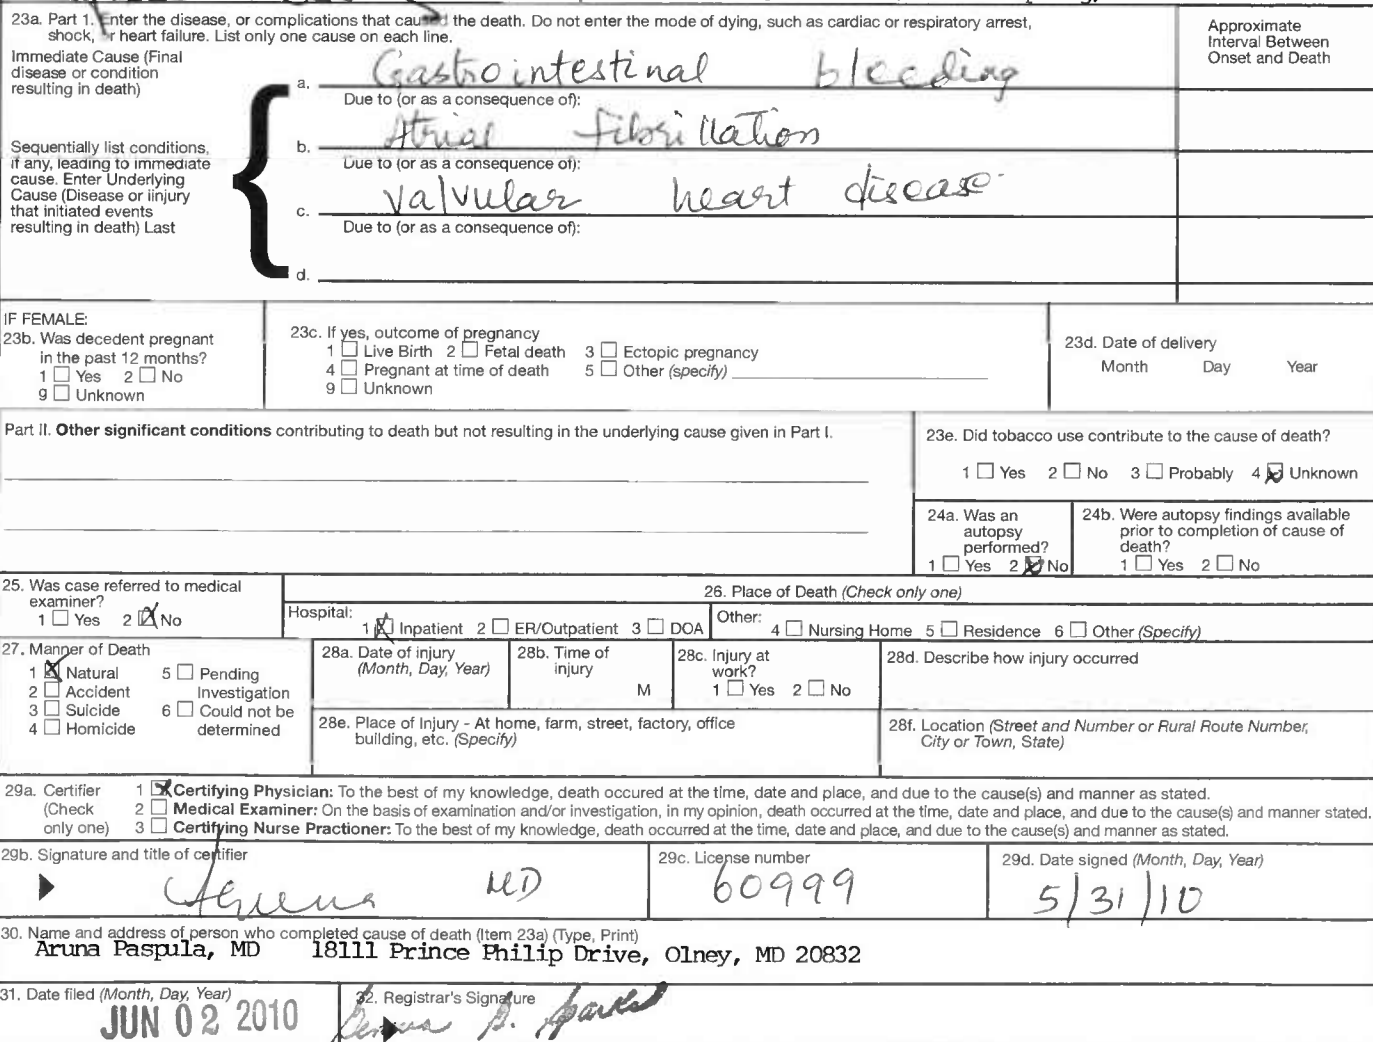 23a. Part 1. Enter the disease, or complications that caused the death. Do not enter the mode of dying, such as cardiac or respiratory arrest,
shock, or heart failure. List only one cause on each line.
Approximate
Interval Between
Onset and Death
Immediate Cause (Final
disease or condition
resulting in death)
a. Gastrointestinal bleeding
Due to (or as a consequence of):
b. Atrial fibrillation
Due to (or as a consequence of):
Sequentially list conditions,
if any, leading to immediate
cause. Enter Underlying
Cause (Disease or iinjury
that initiated events
resulting in death) Last
c. valvular heart disease
Due to (or as a consequence of):
d.
IF FEMALE:
23b. Was decedent pregnant
in the past 12 months?
1 □ Yes 2 □ No
9 □ Unknown
23c. If yes, outcome of pregnancy
1 □ Live Birth 2 □ Fetal death 3 □ Ectopic pregnancy
4 □ Pregnant at time of death 5 □ Other (specify)
9 □ Unknown
23d. Date of delivery
Month Day Year
Part II. Other significant conditions contributing to death but not resulting in the underlying cause given in Part I.
23e. Did tobacco use contribute to the cause of death?
1 □ Yes 2 □ No 3 □ Probably 4 ☒ Unknown
24a. Was an
autopsy
performed?
1 □ Yes 2 ☒ No
24b. Were autopsy findings available
prior to completion of cause of
death?
1 □ Yes 2 □ No
25. Was case referred to medical
examiner?
1 □ Yes 2 ☒ No
26. Place of Death (Check only one)
Hospital:
1 ☒ Inpatient 2 □ ER/Outpatient 3 □ DOA
Other:
4 □ Nursing Home 5 □ Residence 6 □ Other (Specify)
27. Manner of Death
1 ☒ Natural 5 □ Pending
2 □ Accident Investigation
3 □ Suicide 6 □ Could not be
4 □ Homicide determined
28a. Date of injury
(Month, Day, Year)
28b. Time of
injury
M
28c. Injury at
work?
1 □ Yes 2 □ No
28d. Describe how injury occurred
28e. Place of Injury - At home, farm, street, factory, office
building, etc. (Specify)
28f. Location (Street and Number or Rural Route Number,
City or Town, State)
29a. Certifier
(Check
only one)
1 ☒ Certifying Physician: To the best of my knowledge, death occured at the time, date and place, and due to the cause(s) and manner as stated.
2 □ Medical Examiner: On the basis of examination and/or investigation, in my opinion, death occurred at the time, date and place, and due to the cause(s) and manner stated.
3 □ Certifying Nurse Practioner: To the best of my knowledge, death occurred at the time, date and place, and due to the cause(s) and manner as stated.
29b. Signature and title of certifier
MD
29c. License number
60999
29d. Date signed (Month, Day, Year)
5/31/10
30. Name and address of person who completed cause of death (Item 23a) (Type, Print)
Aruna Paspula, MD 18111 Prince Philip Drive, Olney, MD 20832
31. Date filed (Month, Day, Year)
JUN 02 2010
32. Registrar's Signature